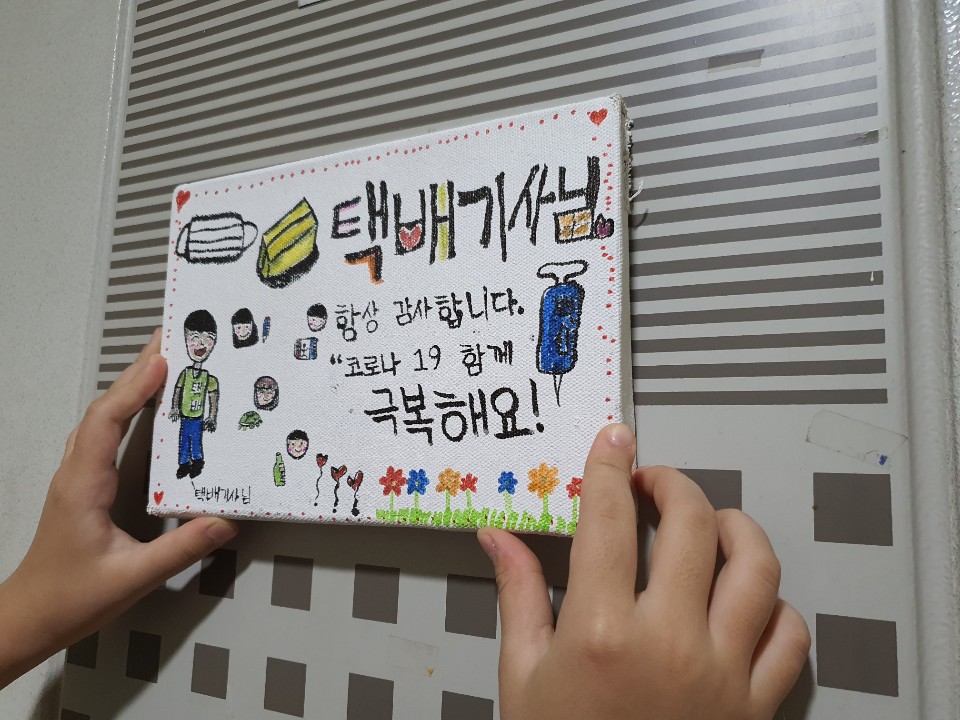 택배기사님
항상 감사합니다.
"코로나 19 함께
극복해요!
택배
택배기사님